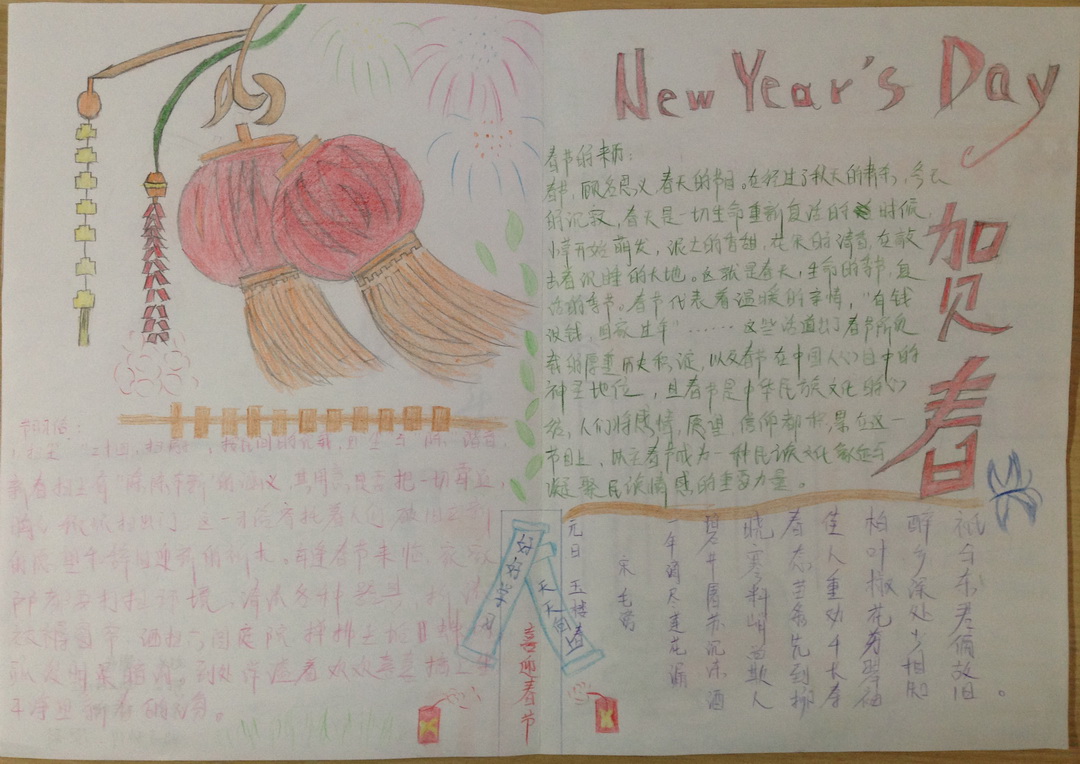 New Year's Day
贺春
春节的来历:
春节,顾名思义春天的节日。在经过了秋天的萧条,冬天
的沉寂,春天是一切生命重新复活的时候,
小草开始萌发,泥土的青甜,花朵的清香,在敲
击着沉睡的大地。这就是春天,生命的季节,复
活的季节。春节代表着温暖的亲情,"有钱
没钱,回家过年"……这些话道出了春节所负
载的厚重历史积淀,以及春节在中国人心目中的
神圣地位,且春节是中华民族文化的心
结,人们将感情,愿望,信仰都积累在这一
节日上,从而春节成为一种民族文化象征与
凝聚民族情感的重要力量。
新春扫尘有"除陈布新"的涵义,其用意是要把一切
这一习俗寄托着人们破旧立新
的愿望和辞旧迎新的祈求,每逢春节来临,家家
都要打扫环境,清洗各种器具,拆洗
洒扫六闾庭院,掸拂尘垢
到处洋溢着欢欢喜喜搞卫生
干净迎新春的气氛。
好好学习
天天向上
喜迎春节
元日 玉楼春
宋 毛滂
一年滴尽莲花漏
碧井屠苏沉冻酒
晓寒料峭尚欺人
春态苗条先到柳
佳人重劝千长寿
柏叶椒花芬翠袖
醉乡深处少相知
祗与东君偏故旧。